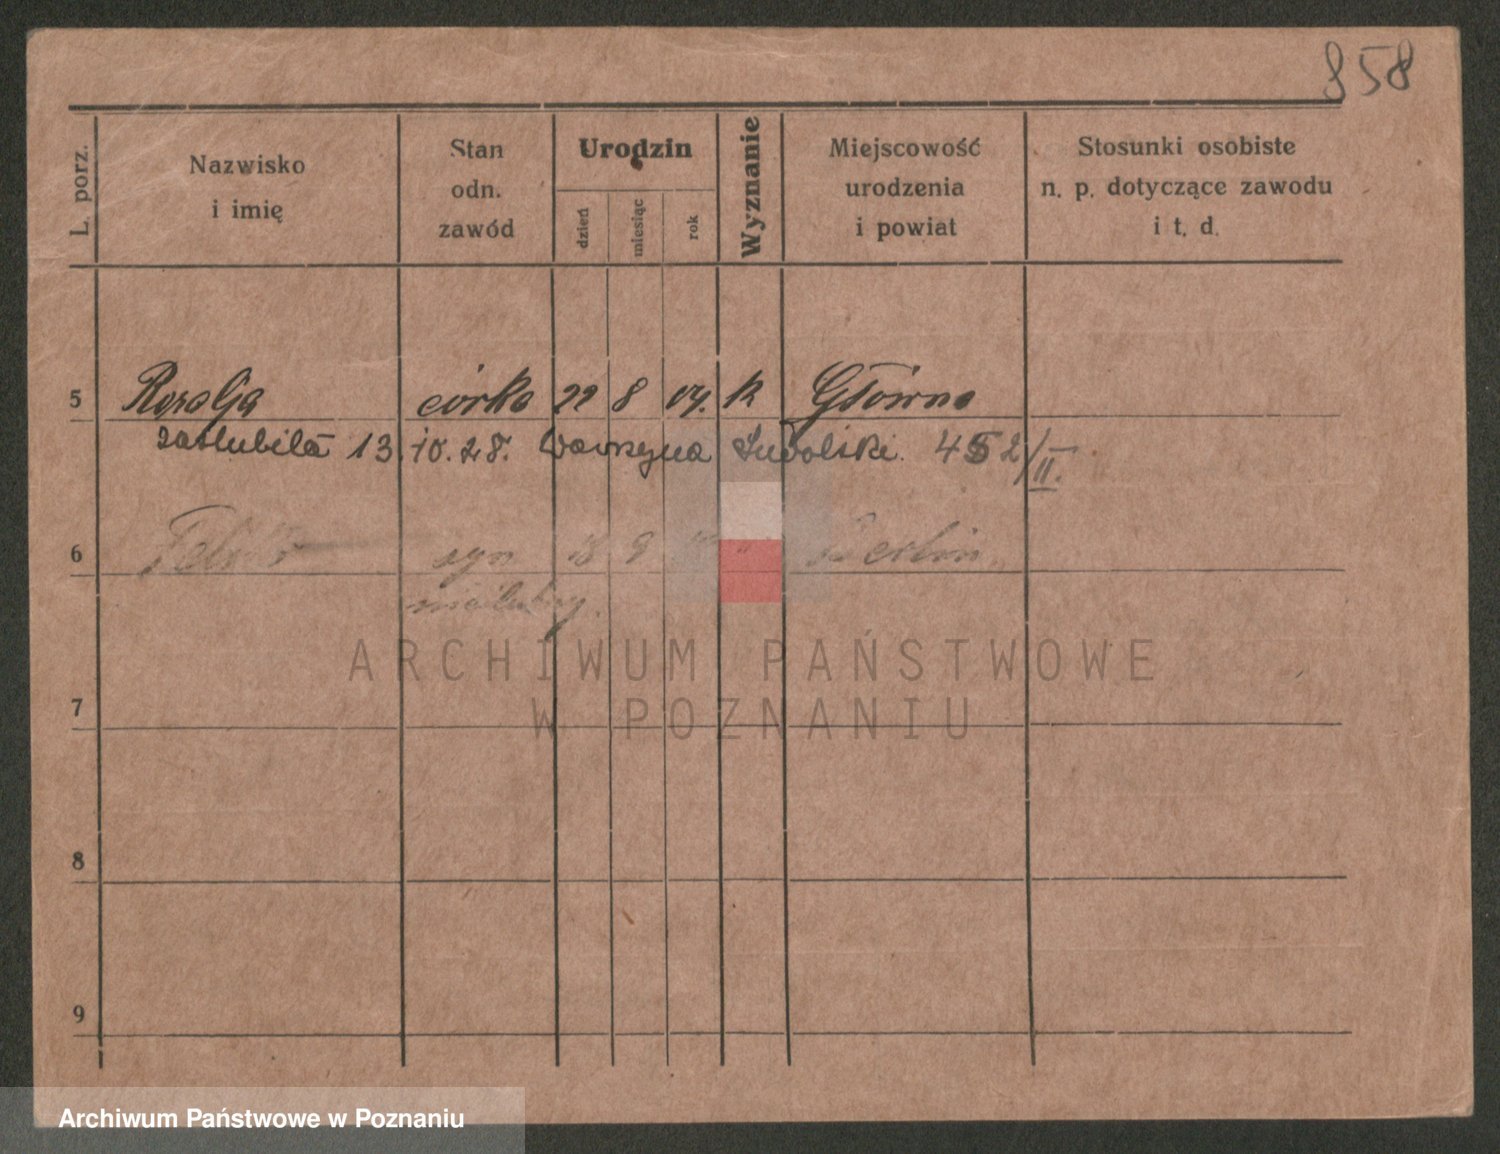 858
L. porz.
Nazwisko
i imię
Stan
odn.
zawód
Urodzin
dzień
miesiąc
rok
Wyznanie
Miejscowość
urodzenia
i powiat
Stosunki osobiste
n. p. dotyczące zawodu
i t. d.
5 córka 22 8 04. k Główna
zaślubiła 13.10.28. Wawrzyna 452/II.
6 syn 18 9 " Berlin
nieślubny.
7
8
9
ARCHIWUM PAŃSTWOWE
W POZNANIU
Archiwum Państwowe w Poznaniu